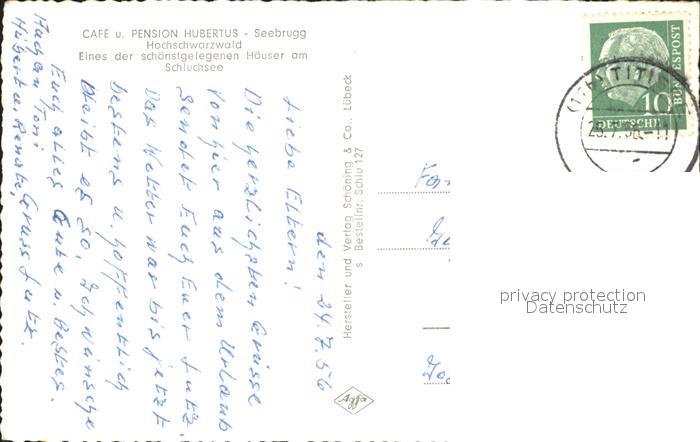 CAFÉ u. PENSION HUBERTUS - Seebrugg
Hochschwarzwald
Eines der schönstgelegenen Häuser am
Schluchsee
den 24.7.56
Liebe Eltern!
Die herzlichsten Grüsse
von hier aus dem Urlaub
sendet Euch Euer Lutz.
Das Wetter war bis jetzt
bestens u. hoffentlich
bleibt es so. Ich wünsche
Euch alles Gute u. Bestes.
Gruss Lutz.
Hubert u. Renate,
Toni
Hersteller und Verlag Schöning & Co., Lübeck
s Bestellnr. Schlu 127
Agfa
10
DEUTSCHE
BUNDESPOST
TITI
privacy protection
Datenschutz